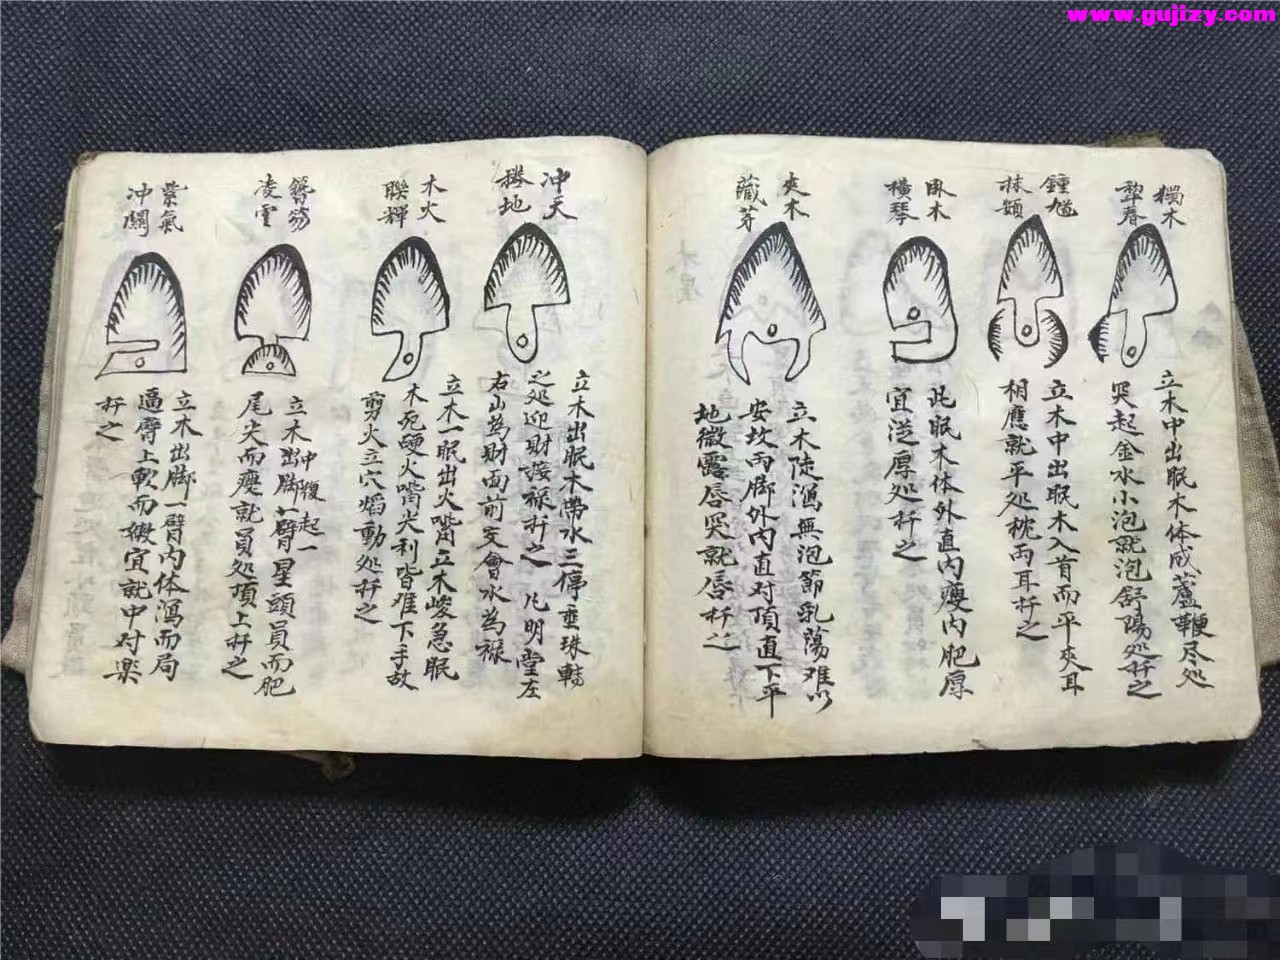 www.gujizy.com
獨木
犂春
立木中出眠木体成蘆鞭尽处
突起金水小泡就泡舒陽处扦之
鍾馗
抹額
立木中出眠木入首而平夾耳
相應就平处枕両耳扦之
臥木
橫琴
此眠木体外直内瘦内肥厚
宜涖厚处扦之
夾木
藏芽
立木陡瀉無泡節乳蕩难以
安坟両脚外内直对頂直下平
地微露唇突就唇扦之
冲天
撁地
立木出眠木帶水三停垂珠轉
之处迎財渡禄扦之 凡明堂左
右山為財面前交會水為禄
木火
聯輝
立木一眠出火嘴立木峻急眠
木死硬火嘴尖利皆难下手故
剪火立穴熖動处扦之
簪笏
凌雲
立木出脚一臂星頭員而肥
冲腹起一
尾尖而瘦就員处頂上扦之
紫氣
冲關
立木出脚一臂内体瀉而局
逼唇上軟而嫩宜就中对楽
扦之